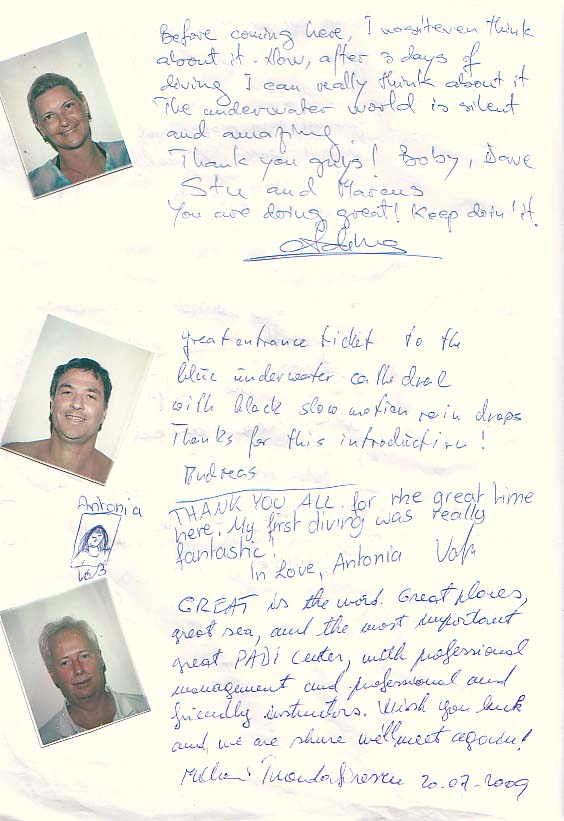 Before coming here, I wasn't even think
about it. Now, after 3 days of
diving I can really think about it
The underwater world is silent
and amazing
Thank you guys! Boby, Dave
Stu and Marcus
You are doing great! Keep doin' it.
great entrance ticket to the
blue underwater cathedral
with black slow motion rain drops
Thanks for this introduction!
Andreas
Antonia
THANK YOU ALL for the great time
here. My first diving was really
fantastic!
In Love, Antonia
GREAT is the word. Great places,
great sea, and the most important
great PADI Center, with professional
management and professional and
friendly instructors. Wish you luck
and, we are shure we'll meet again!
20.07.2009